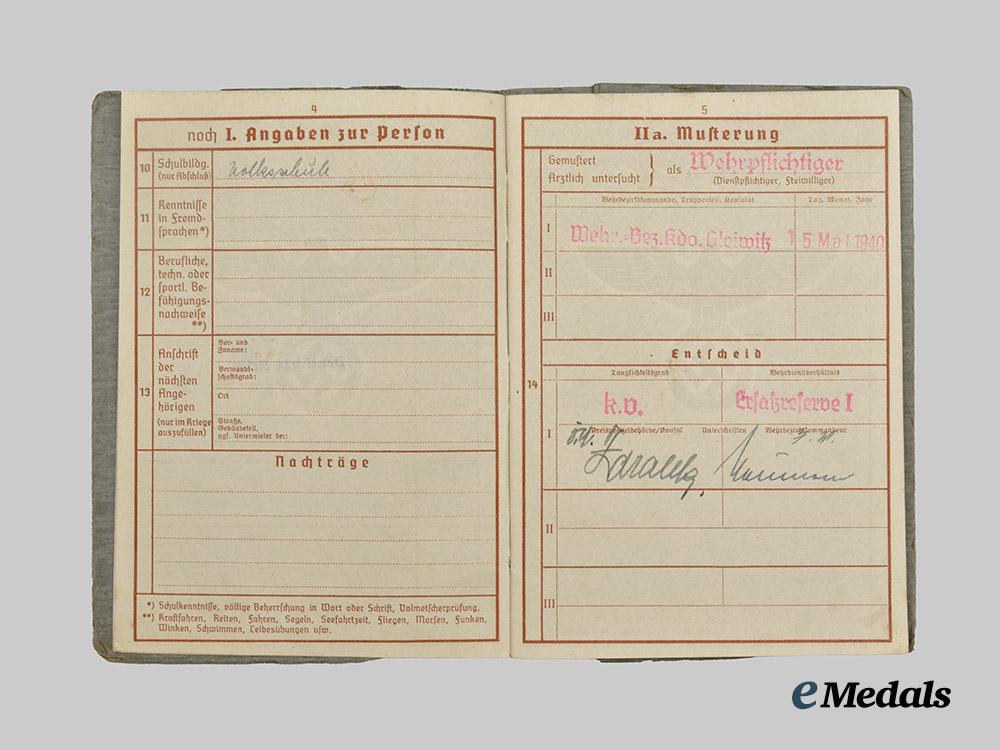 4
noch I. Angaben zur Person
10
Schulbildg.
(nur Abschluß)
Volksschule
11
Kenntnisse
in Fremd-
sprachen*)
12
Berufliche,
techn. oder
sportl. Be-
fähigungs-
nachweise
**)
13
Anschrift
der
nächsten
Ange-
hörigen
(nur im Kriege
auszufüllen)
Vor- und
Zuname:
Verwandt-
schaftsgrad:
Ort
Straße,
Gebäudeteil,
ggf. Untermieter bei:
Nachträge
*) Schulkenntnisse, völlige Beherrschung in Wort oder Schrift, Dolmetscherprüfung.
**) Kraftfahren, Reiten, Fahren, Segeln, Seefahrtzeit, Fliegen, Morsen, Funken,
Winken, Schwimmen, Leibesübungen usw.
5
IIa. Musterung
Gemustert
Ärztlich untersucht
} als Wehrpflichtiger
(Dienstpflichtiger, Freiwilliger)
Wehrbezirkskommando, Truppenteil, Konsulat
Tag, Monat, Jahr
I
Wehr.-Bez.Kdo. Gleiwitz
15. Mai 1940
II
III
Entscheid
14
Tauglichkeitsgrad
Wehrdienstverhältnis
k.v.
Ersatzreserve I
I
Kreispolizeibehörde/Konsul
Unterschriften
Wehrbezirkskommandeur
II
III
eMedals